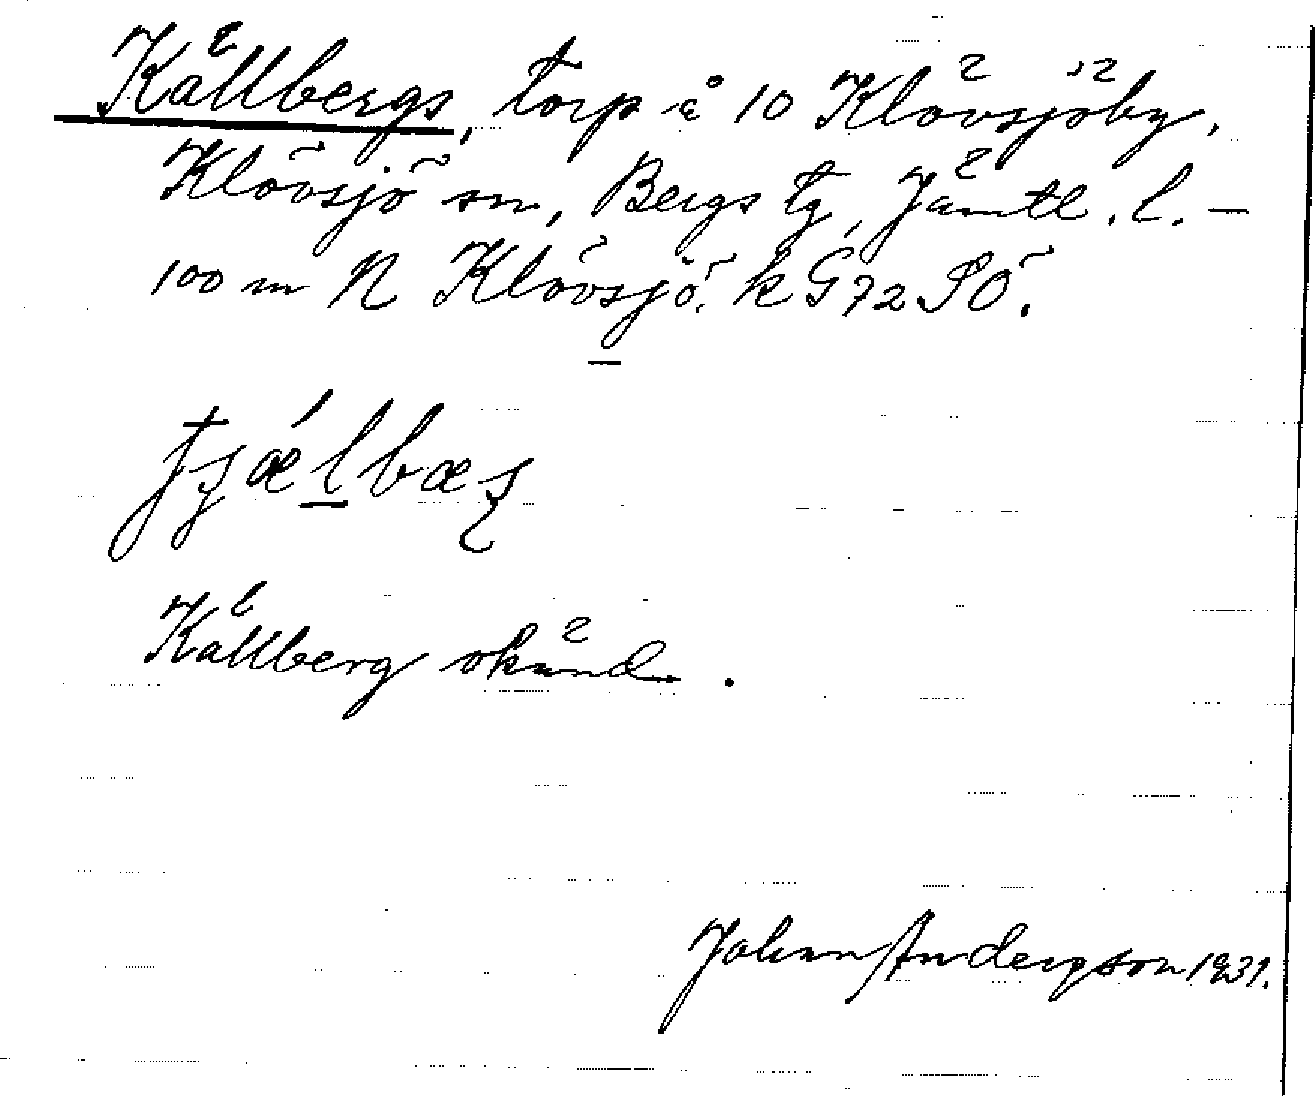 Källbergs, torp å 10 Klövsjöby,
Klövsjö sn, Bergs tg, Jämtl. l. –
100 m N Klövsjö. k G72 SÖ.
Källberg okänd.
Johan Andersson 1931.